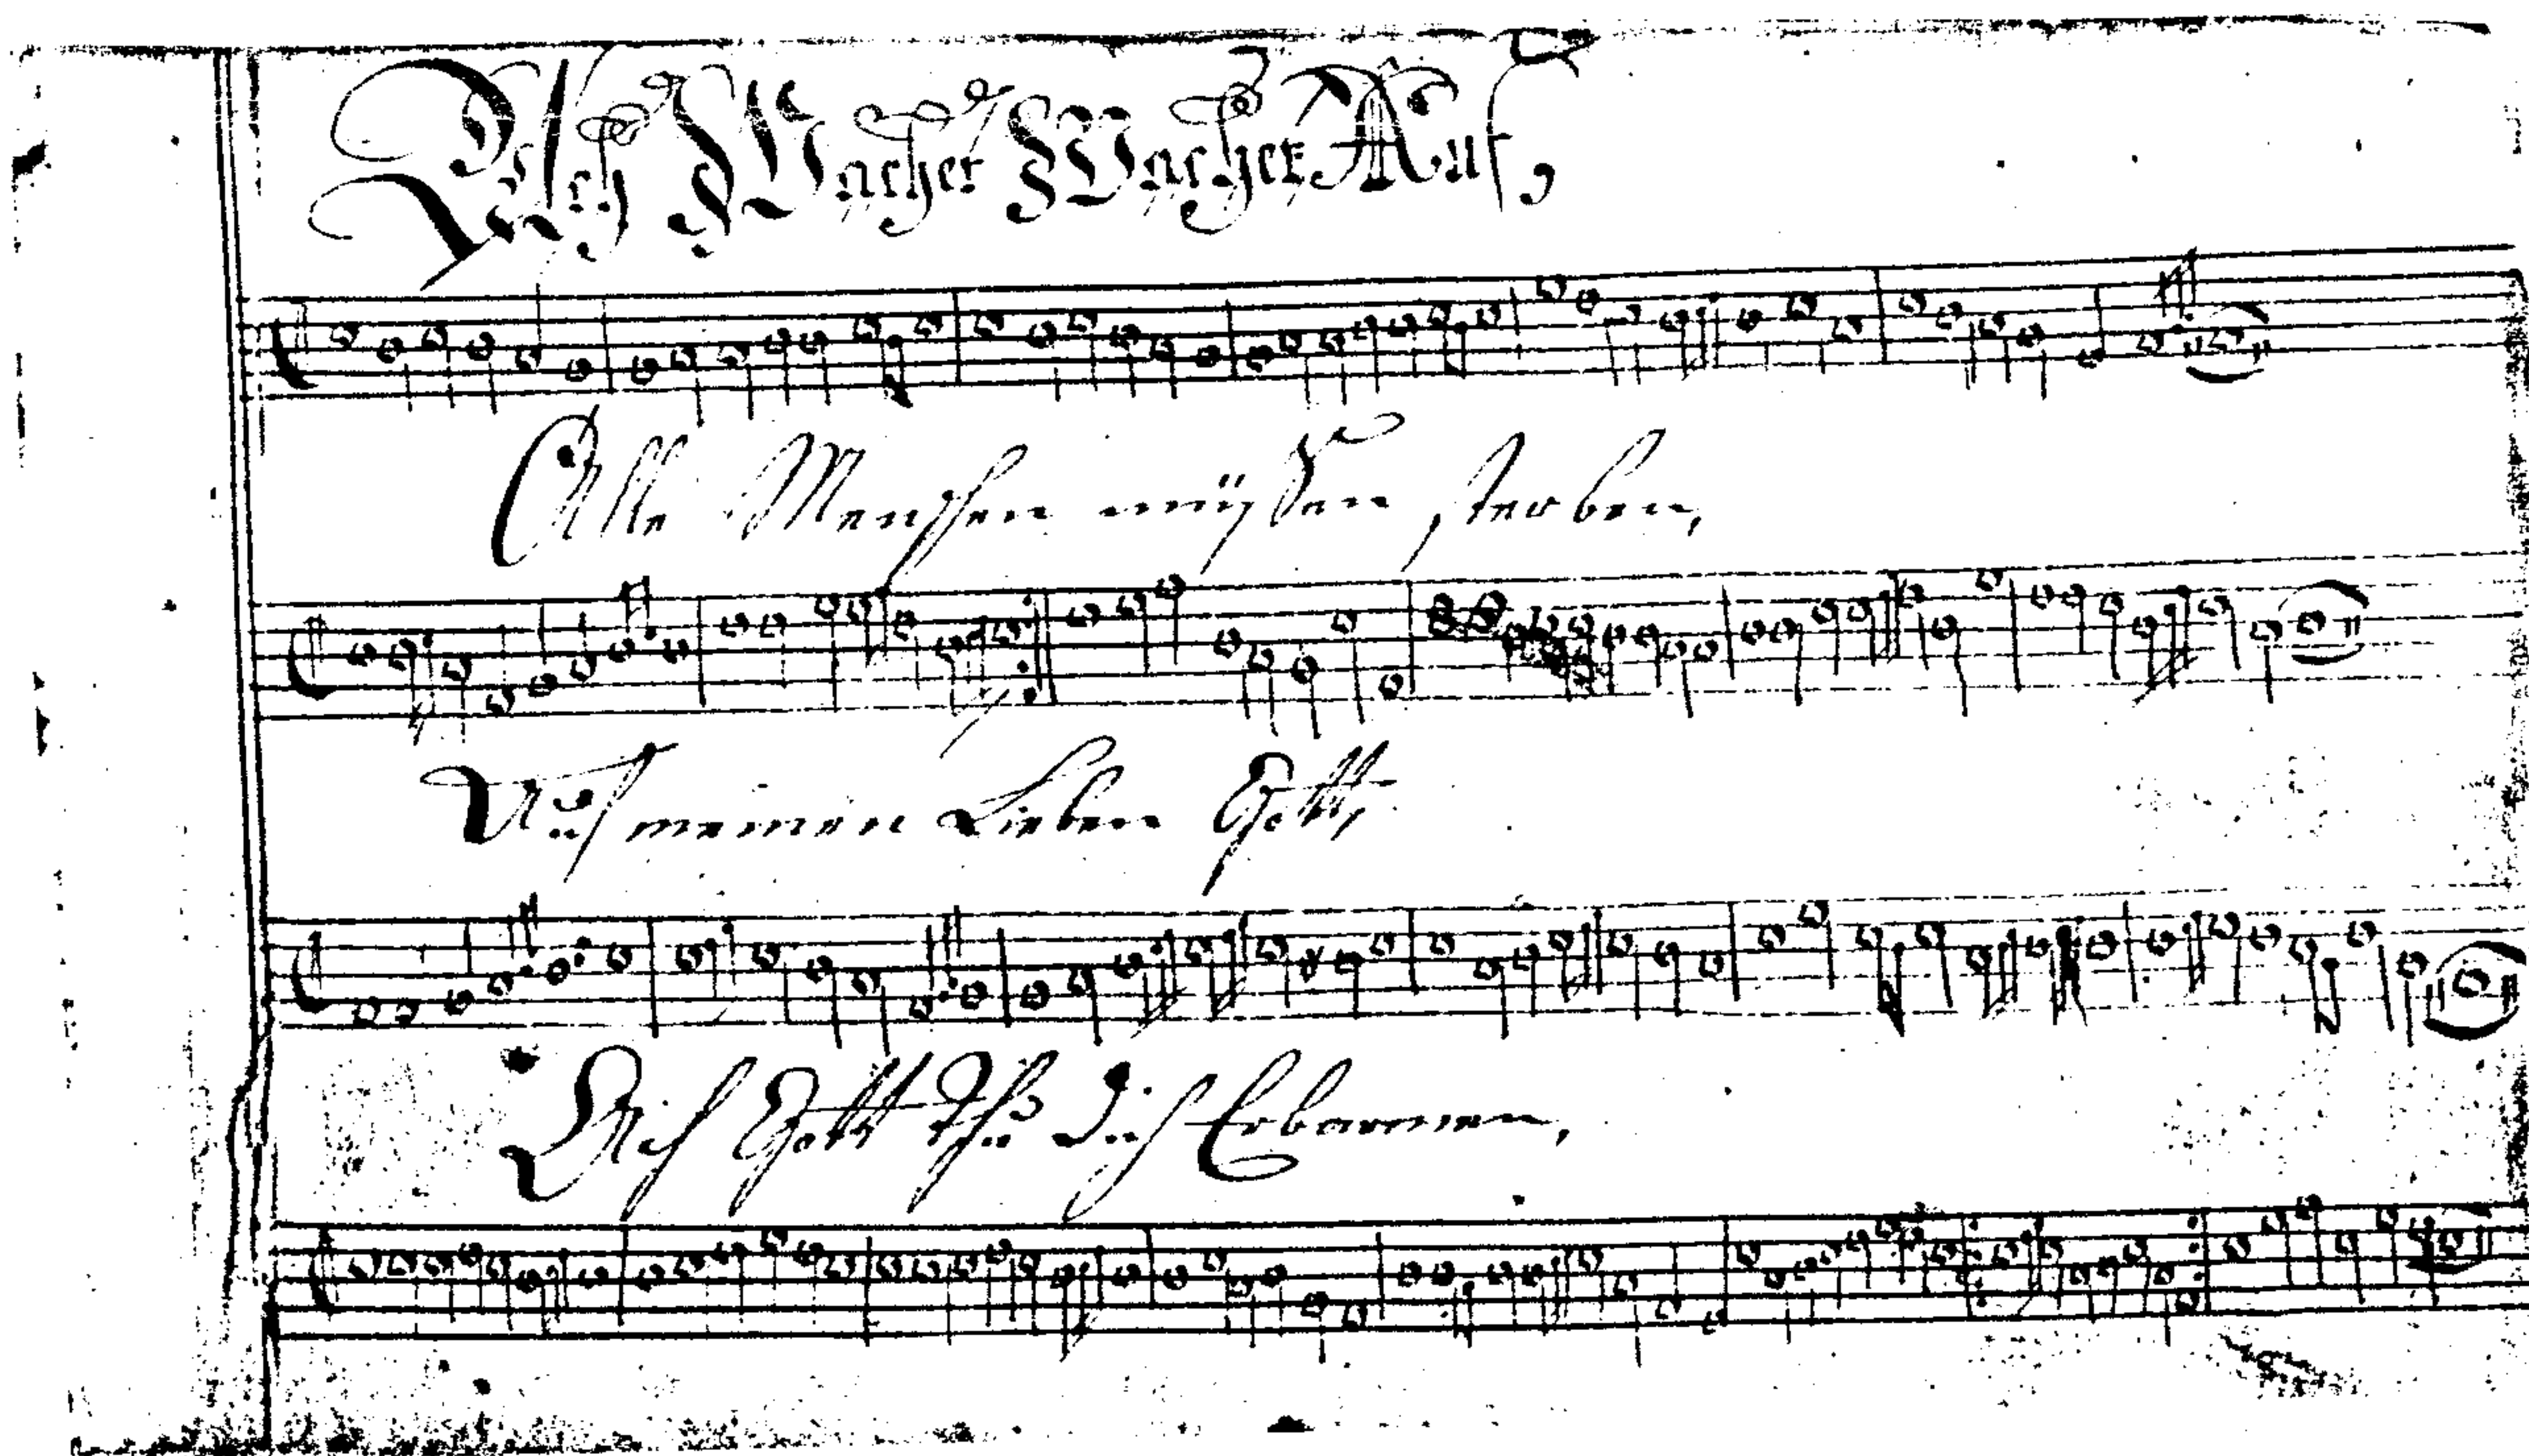 Ach Wachet Wachet Auf,
Alle Menschen müssen sterben,
Auf meinen Lieben Gott,
Ach Gott thu dich Erbarmen,